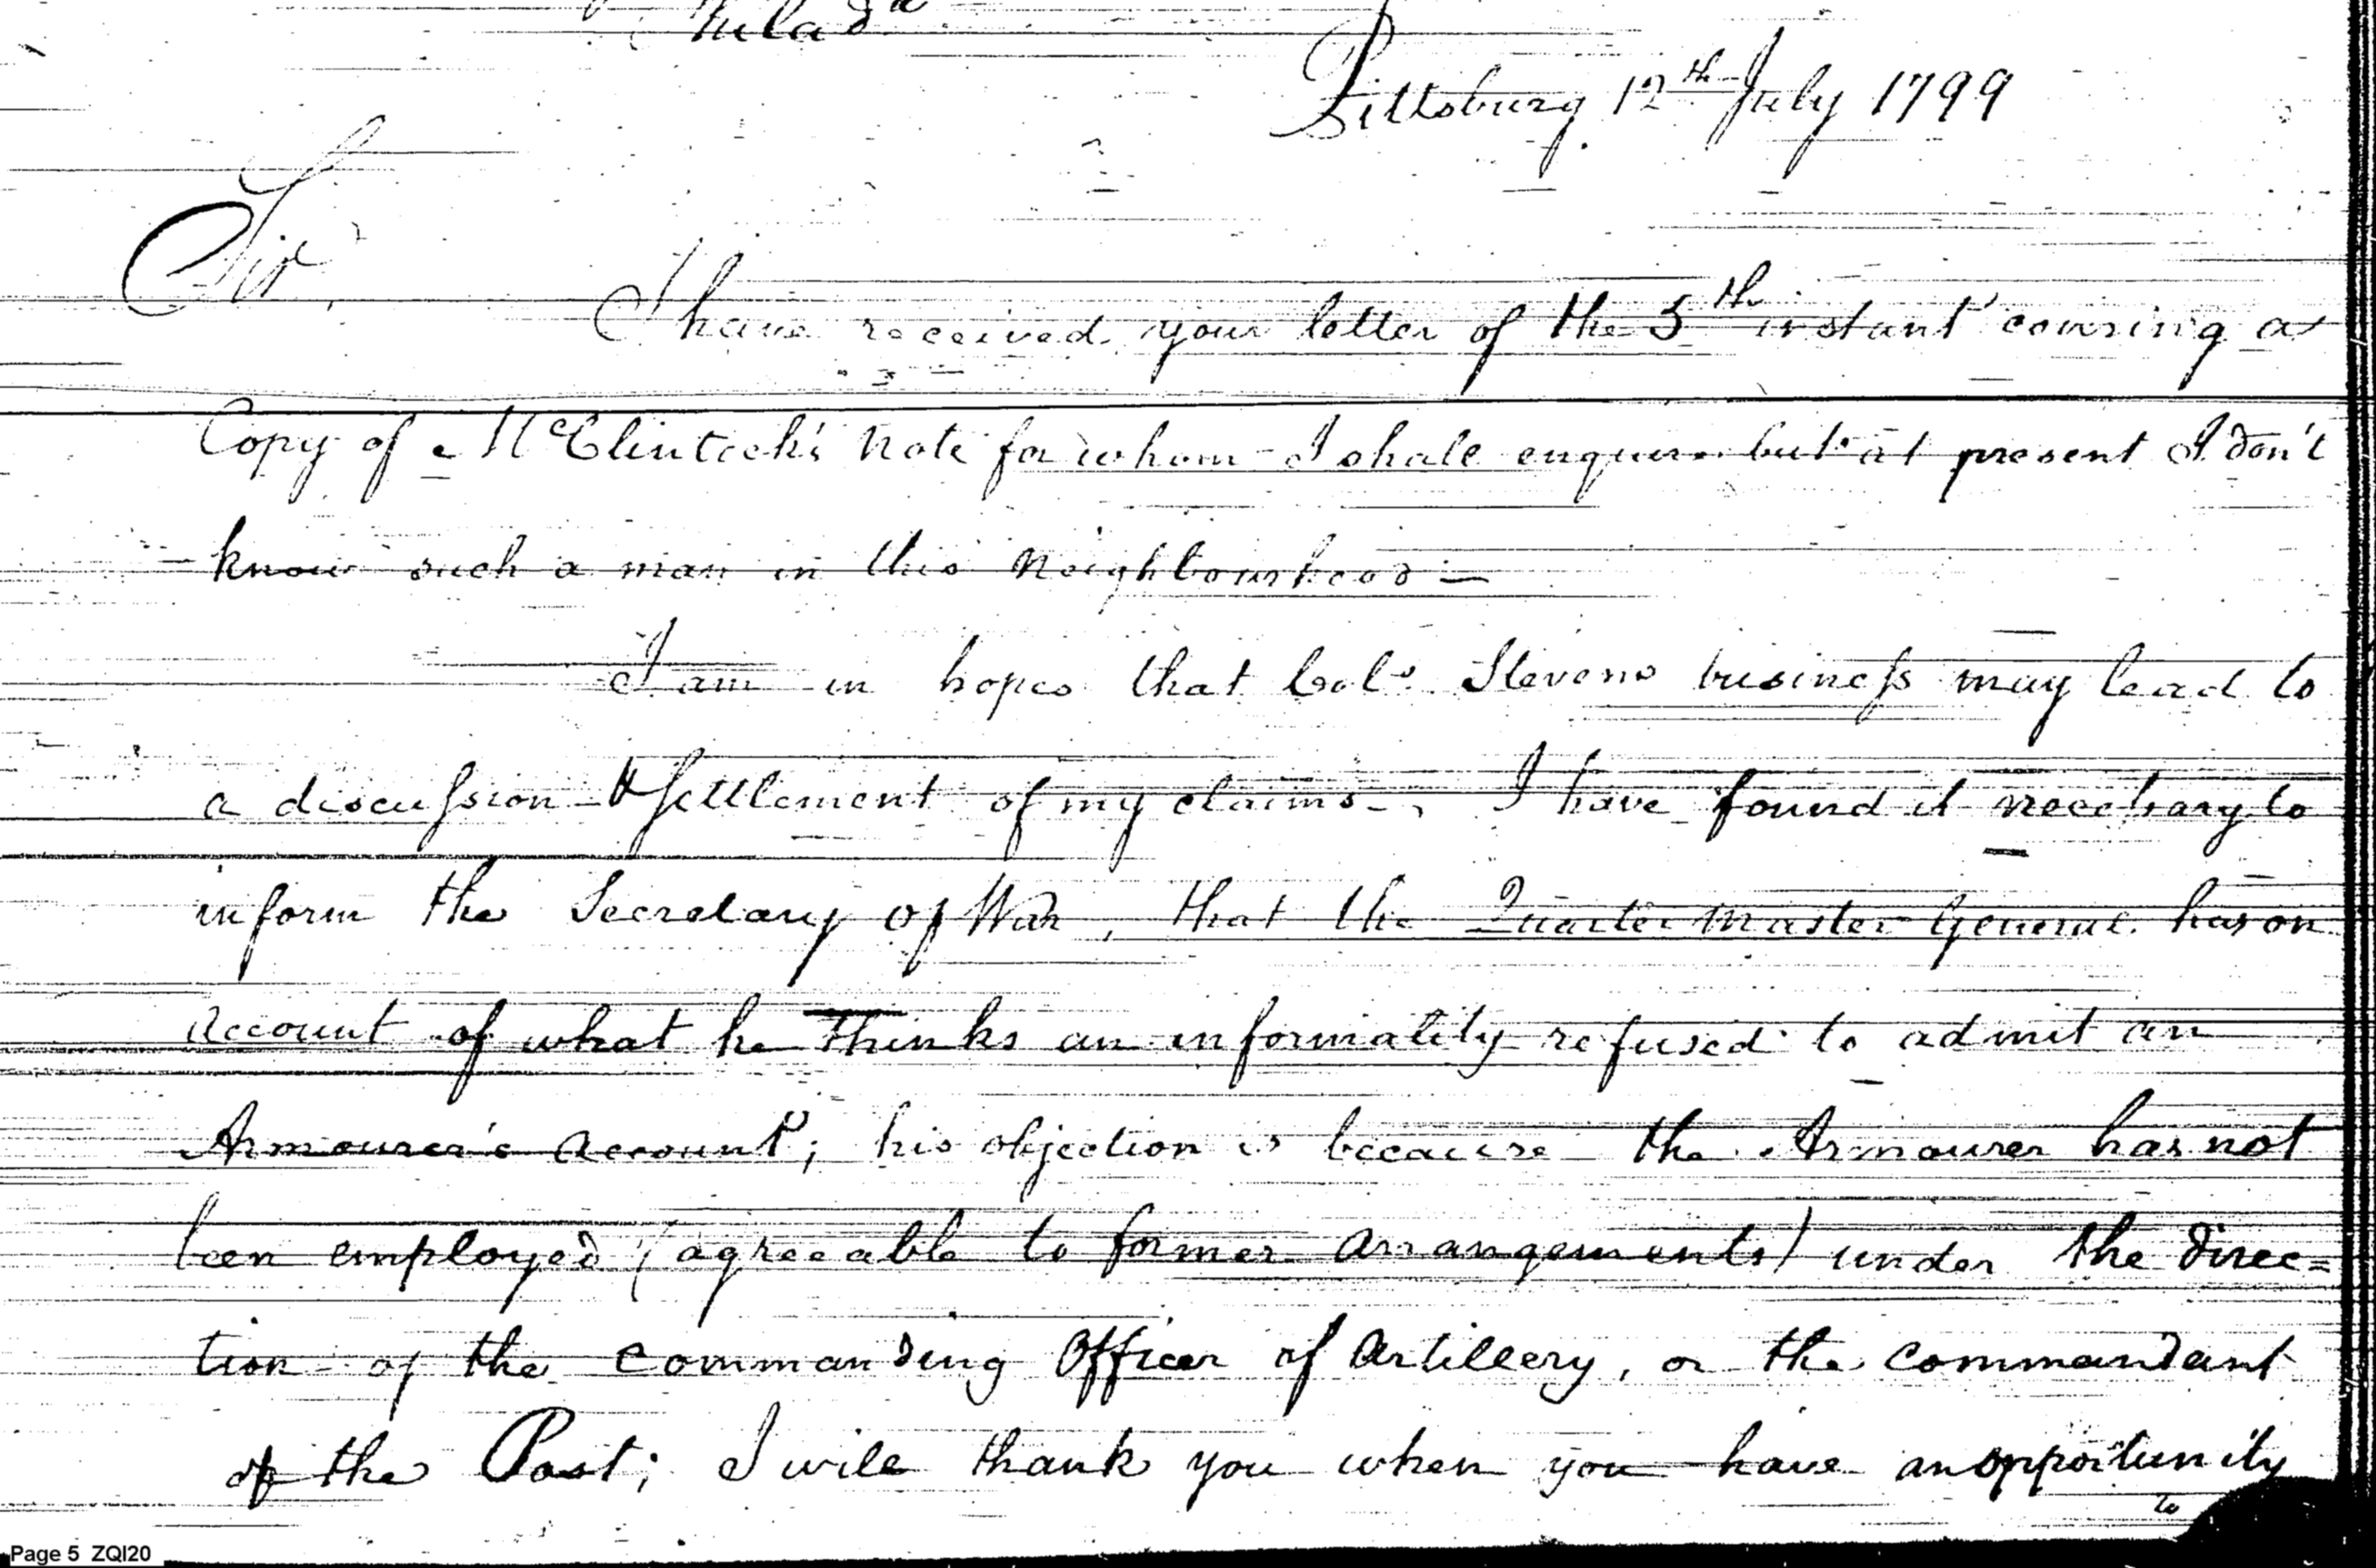 Philad^a
Pittsburg 12th July 1799
Sir,
I have received your letter of the 5th instant covering a
Copy of McClintock's Note for whom I shall enquire but at present I don't
know such a man in this Neighbourhood —
I am in hopes that Colo. Stevens business may lead to
a discussion & settlement of my claims. I have found it necessary to
inform the Secretary of War, that the Quarter Master General has on
account of what he thinks an informality refused to admit an
Armourer's account; his objection is because the Armourer has not
been employed (agreeable to former arrangements) under the direc=
tion of the commanding Officer of Artillery, or the commandant
of the Post; I will thank you when you have an opportunity
to
Page 5 ZQI20